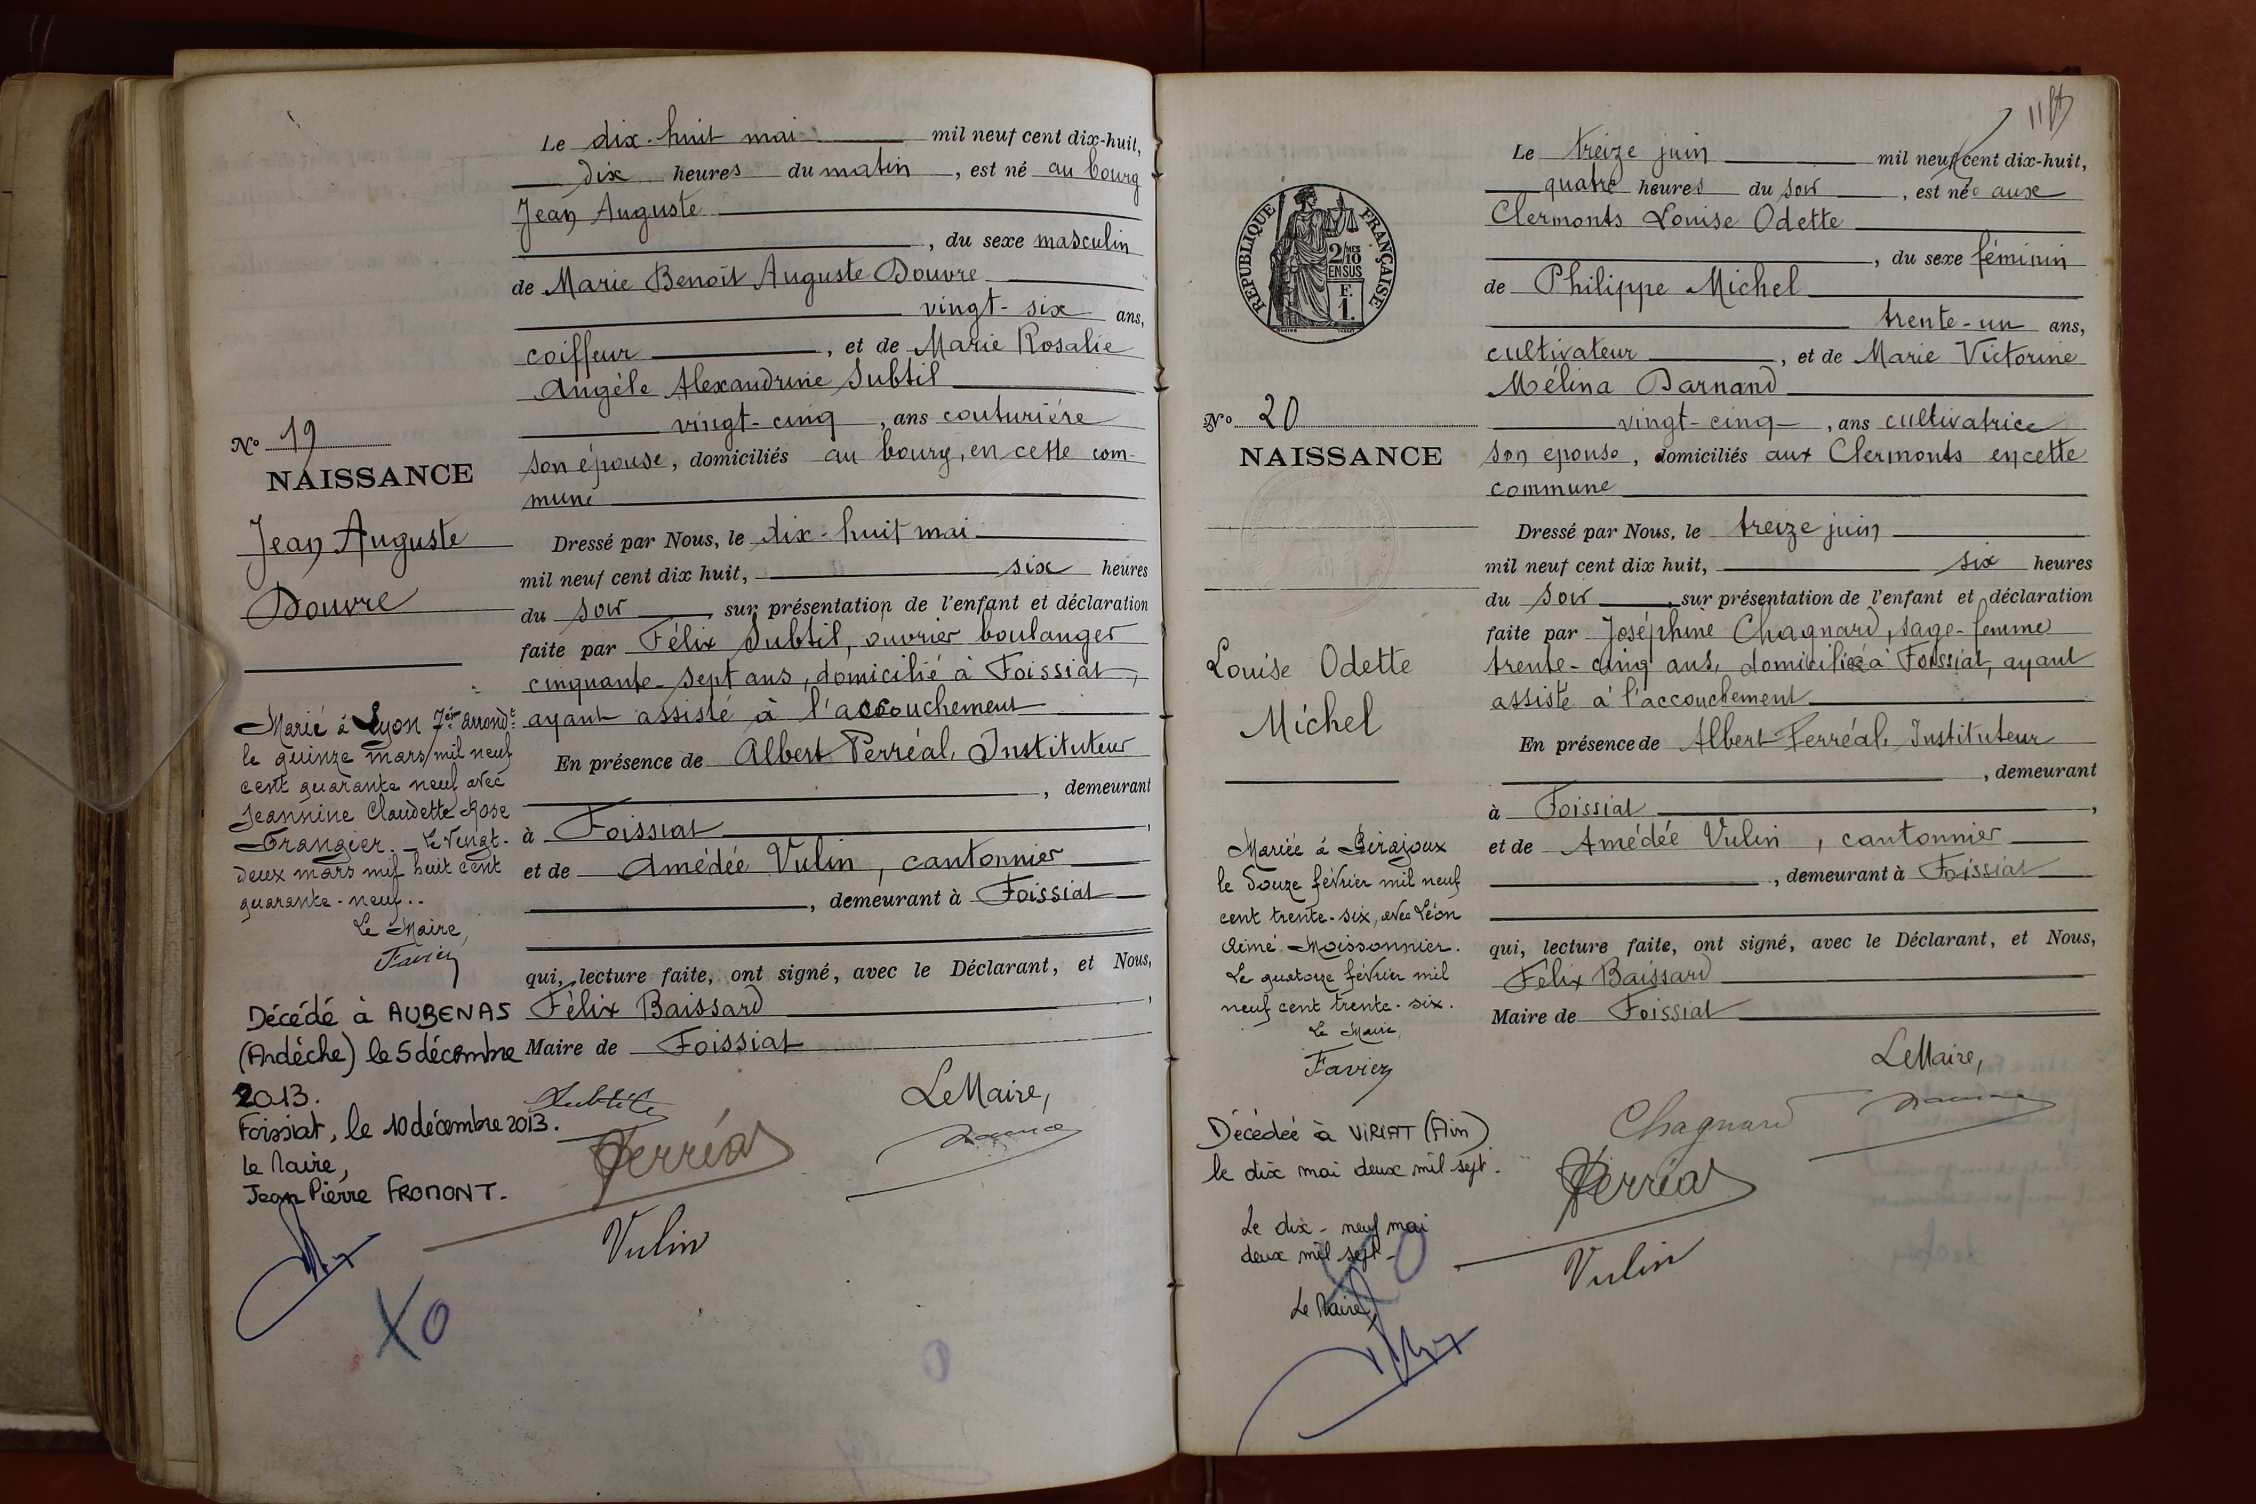 Le dix-huit mai mil neuf cent dix-huit,
dix heures du matin, est né au bourg
Jean Auguste
, du sexe masculin
de Marie Benoît Auguste Douvre
vingt-six ans,
coiffeur, et de Marie Rosalie
Angèle Alexandrine Subtil
vingt-cinq, ans couturière
son épouse, domiciliés au bourg, en cette com-
mune
Dressé par Nous, le dix-huit mai
mil neuf cent dix huit, six heures
du soir, sur présentation de l'enfant et déclaration
faite par Félix Subtil, ouvrier boulanger
cinquante-sept ans, domicilié à Foissiat,
ayant assisté à l'accouchement
En présence de Albert Perréal, Instituteur
, demeurant
à Foissiat,
et de Amédée Vulin, cantonnier
, demeurant à Foissiat
qui, lecture faite, ont signé, avec le Déclarant, et Nous,
Félix Baissard,
Maire de Foissiat
Le Maire,
Subtil
Perréal
Vulin
No 19
NAISSANCE
Jean Auguste
Douvre
Marié à Lyon 7ème arrondt
le quinze mars mil neuf
cent quarante neuf avec
Jeannine Claudette Rose
Grangier. - Le vingt-
deux mars mil huit cent
quarante-neuf..
Le Maire,
Favier
Décédé à AUBENAS
(Ardèche) le 5 décembre
2013.
Foissiat, le 10 décembre 2013.
Le Maire,
Jean Pierre FROMONT.
XO
118
Le treize juin mil neuf cent dix-huit,
quatre heures du soir, est née aux
Clermonts Louise Odette
, du sexe féminin
de Philippe Michel
trente-un ans,
cultivateur, et de Marie Victorine
Mélina Darnand
vingt-cinq, ans cultivatrice
son épouse, domiciliés aux Clermonts en cette
commune
Dressé par Nous, le treize juin
mil neuf cent dix huit, six heures
du soir, sur présentation de l'enfant et déclaration
faite par Joséphine Chagnard, sage-femme
trente-cinq ans, domiciliée à Foissiat, ayant
assisté à l'accouchement
En présence de Albert Perréal, Instituteur
, demeurant
à Foissiat,
et de Amédée Vulin, cantonnier
, demeurant à Foissiat
qui, lecture faite, ont signé, avec le Déclarant, et Nous,
Félix Baissard
Maire de Foissiat
Le Maire,
Chagnard
Perréal
Vulin
REPUBLIQUE FRANÇAISE
2/MES
10
EN SUS
F.
1.
No 20
NAISSANCE
Louise Odette
Michel
Mariée à Bérajoux
le douze février mil neuf
cent trente-six, avec Léon
Aimé Moissonnier.
Le quatorze février mil
neuf cent trente-six.
Le Maire
Favier
Décédée à VIRIAT (Ain)
le dix mai deux mil sept.
Le dix-neuf mai
deux mil sept-
Le Maire,
XO